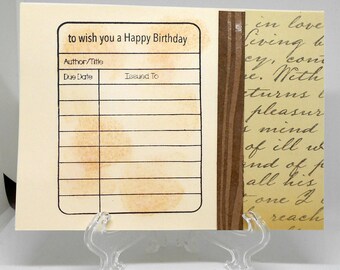 to wish you a Happy Birthday
Author/Title
Due Date Issued To
living b
cy, con
e. With
returns i
pleasur
is mind
of ill w
henry of
all his
t one I
reach